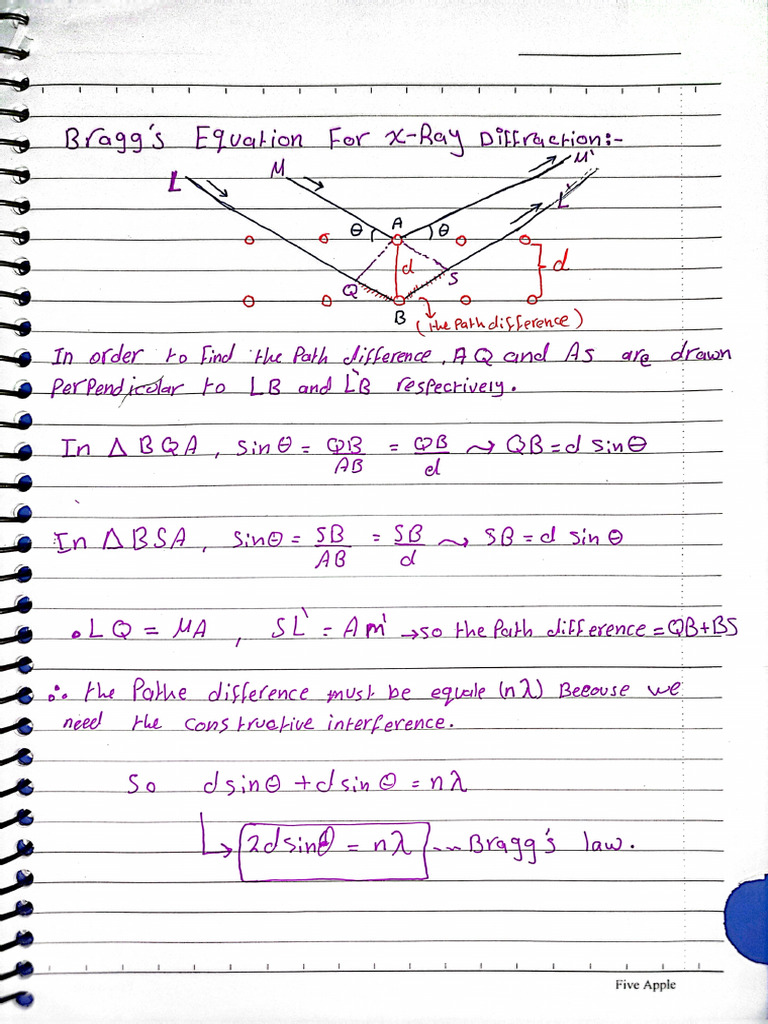 Bragg's Equation For X-Ray Diffraction:-
L M M' L'
θ A θ
d d
Q S
B (the Path difference)
In order to find the Path difference, AQ and AS are drawn
Perpendicular to LB and L'B respectively.
In Δ BQA, sinθ = QB/AB = QB/d ⇝ QB = d sinθ
In ΔBSA, sinθ = SB/AB = SB/d ⇝ SB = d sin θ
• LQ = MA , SL' = Am' → so the Path difference = QB+BS
∴ the Pathe difference must be equale (nλ) Because we
need the constructive interference.
So dsinθ + dsin θ = nλ
↳ 2dsinθ = nλ --- Bragg's law.
Five Apple